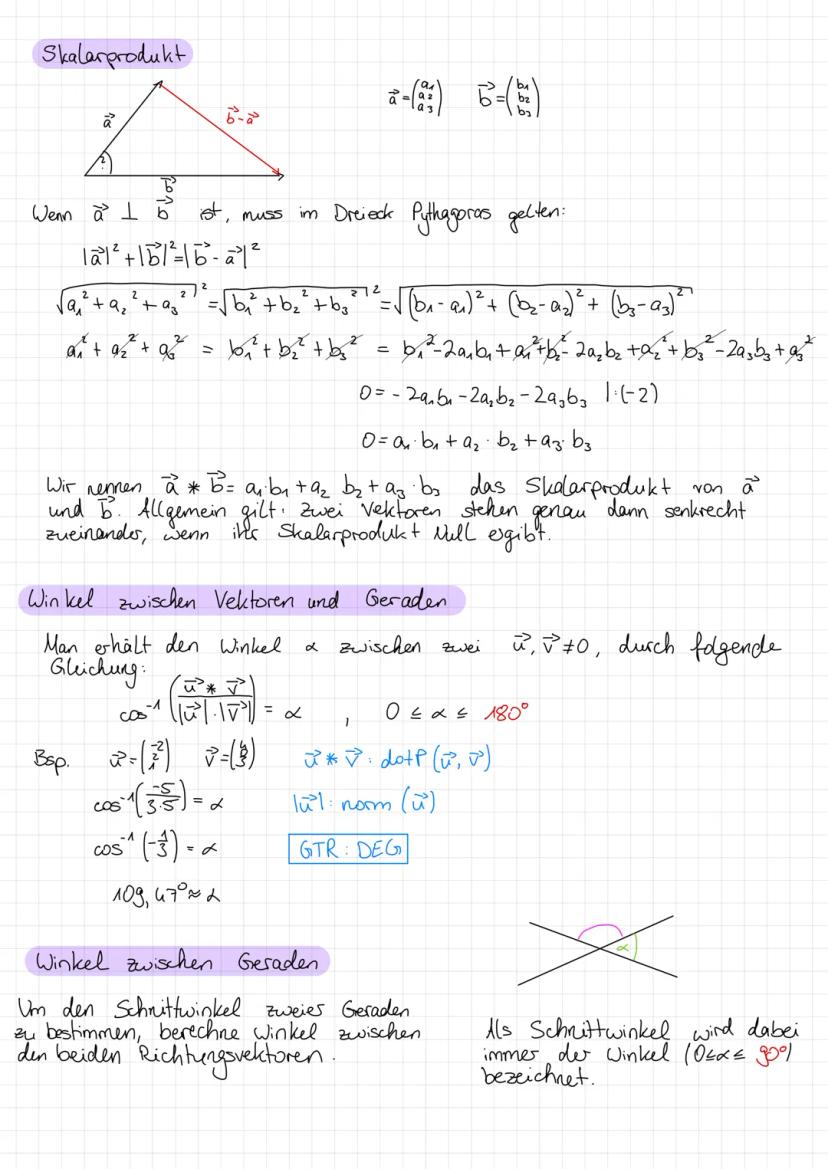 Skalarprodukt
a⃗ = (a₁ a₂ a₃) b⃗ = (b₁ b₂ b₃)
a⃗
b⃗-a⃗
?
b⃗
Wenn a⃗ ⊥ b⃗ ist, muss im Dreieck Pythagoras gelten:
|a⃗|² + |b⃗|² = |b⃗ - a⃗|²
√(a₁² + a₂² + a₃²)² = √(b₁² + b₂² + b₃²)² = √((b₁ - a₁)² + (b₂ - a₂)² + (b₃ - a₃)²)
a₁² + a₂² + a₃² = b₁² + b₂² + b₃² = b₁² - 2a₁b₁ + a₁² + b₂² - 2a₂b₂ + a₂² + b₃² - 2a₃b₃ + a₃²
0 = - 2a₁b₁ - 2a₂b₂ - 2a₃b₃ |:(-2)
0 = a₁·b₁ + a₂·b₂ + a₃·b₃
Wir nennen a⃗ * b⃗ = a₁·b₁ + a₂ b₂ + a₃·b₃ das Skalarprodukt von a⃗
und b⃗. Allgemein gilt: zwei Vektoren stehen genau dann senkrecht
zueinander, wenn ihr Skalarprodukt Null ergibt.
Winkel zwischen Vektoren und Geraden
Man erhält den Winkel α zwischen zwei u⃗, v⃗ ≠ 0, durch folgende
Gleichung:
cos⁻¹ ((u⃗ * v⃗)/(|u⃗|·|v⃗|)) = α , 0 ≤ α ≤ 180°
Bsp. u⃗ = (-2 2 1) v⃗ = u⃗ * v⃗: dotP (u⃗, v⃗)
cos⁻¹(-5/(3·5)) = α |u⃗|: norm (u⃗)
cos⁻¹ (-1/3) = α GTR: DEG
109,47° ≈ α
α
Winkel zwischen Geraden
Um den Schnittwinkel zweier Geraden
zu bestimmen, berechne Winkel zwischen
den beiden Richtungsvektoren.
Als Schnittwinkel wird dabei
immer der Winkel (0≤α≤ 90°)
bezeichnet.